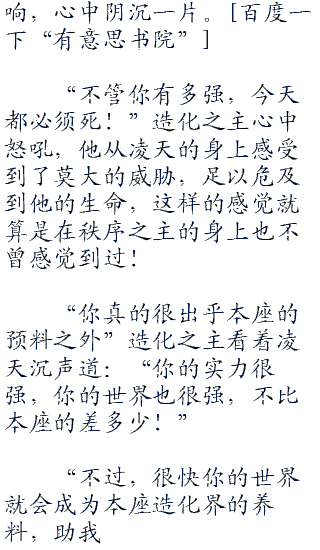 响，心中阴沉一片。[百度一
下“有意思书院”]
“不管你有多强，今天
都必须死！”造化之主心中
怒吼，他从凌天的身上感受
到了莫大的威胁，足以危及
到他的生命，这样的感觉就
算是在秩序之主的身上也不
曾感觉到过！
“你真的很出乎本座的
预料之外”造化之主看着凌
天沉声道：“你的实力很
强，你的世界也很强，不比
本座的差多少！”
“不过，很快你的世界
就会成为本座造化界的养
料，助我